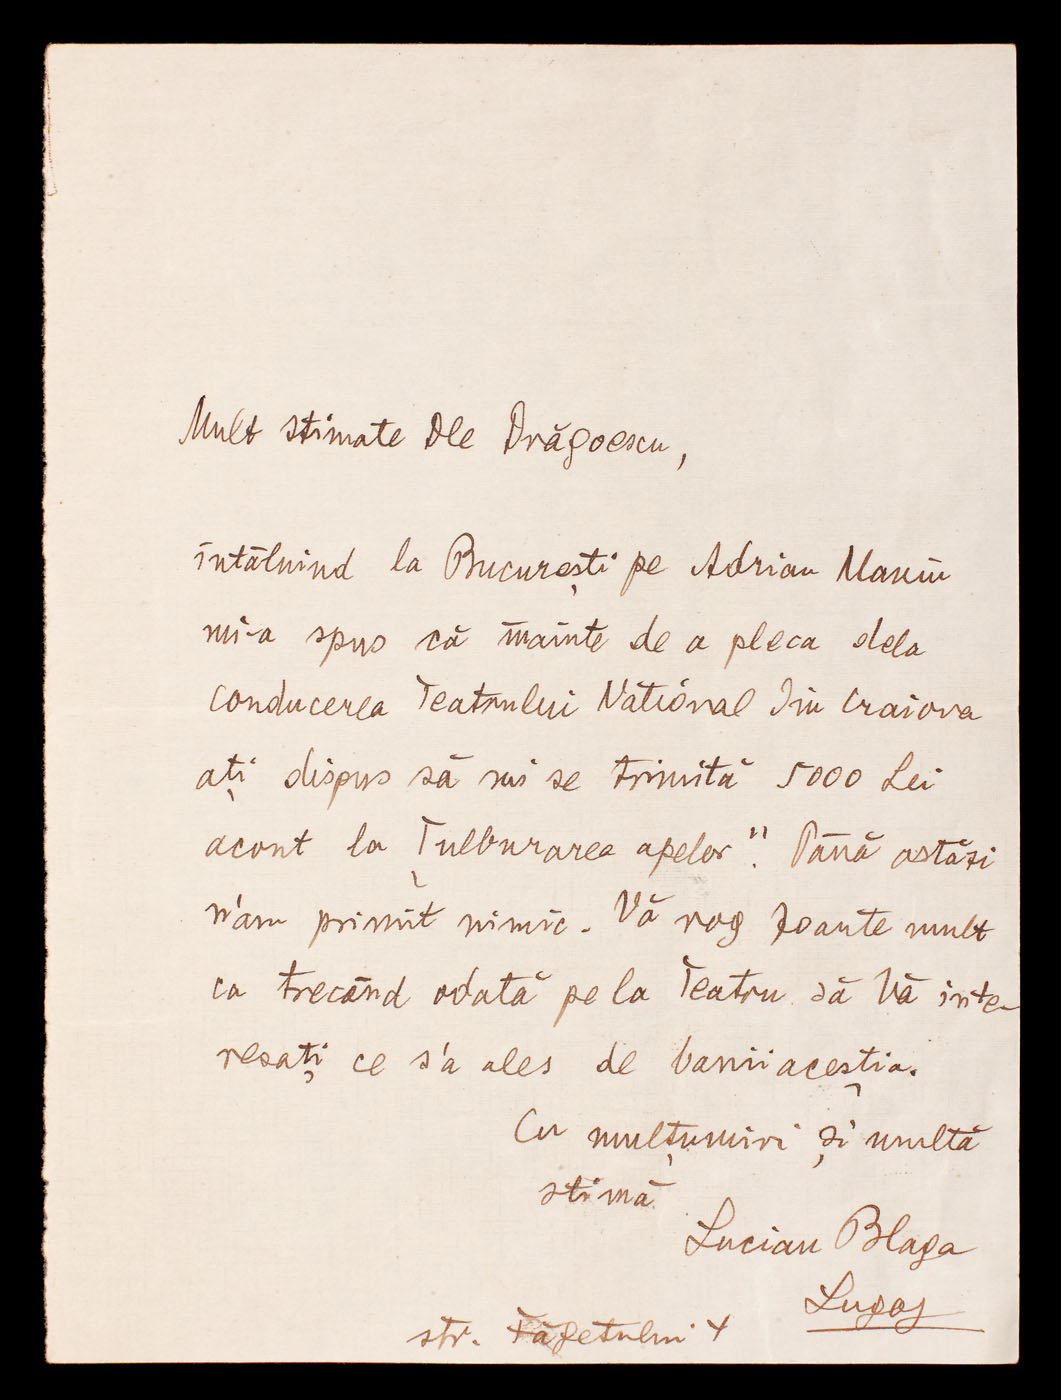 Mult stimate Dle Drăgoescu,
întâlnind la București pe Adrian Maniu
mi-a spus că înainte de a pleca dela
conducerea Teatrului Național din Craiova
ați dispus să mi se trimită 5000 Lei
acont la „Tulburarea apelor". Până astăzi
n'am primit nimic. Vă rog foarte mult
ca trecând odată pe la Teatru să Vă inte-
resați ce s'a ales de banii aceștia.
Cu mulțumiri și multă
stimă
Lucian Blaga
Lugoj
str. Făgetului 4